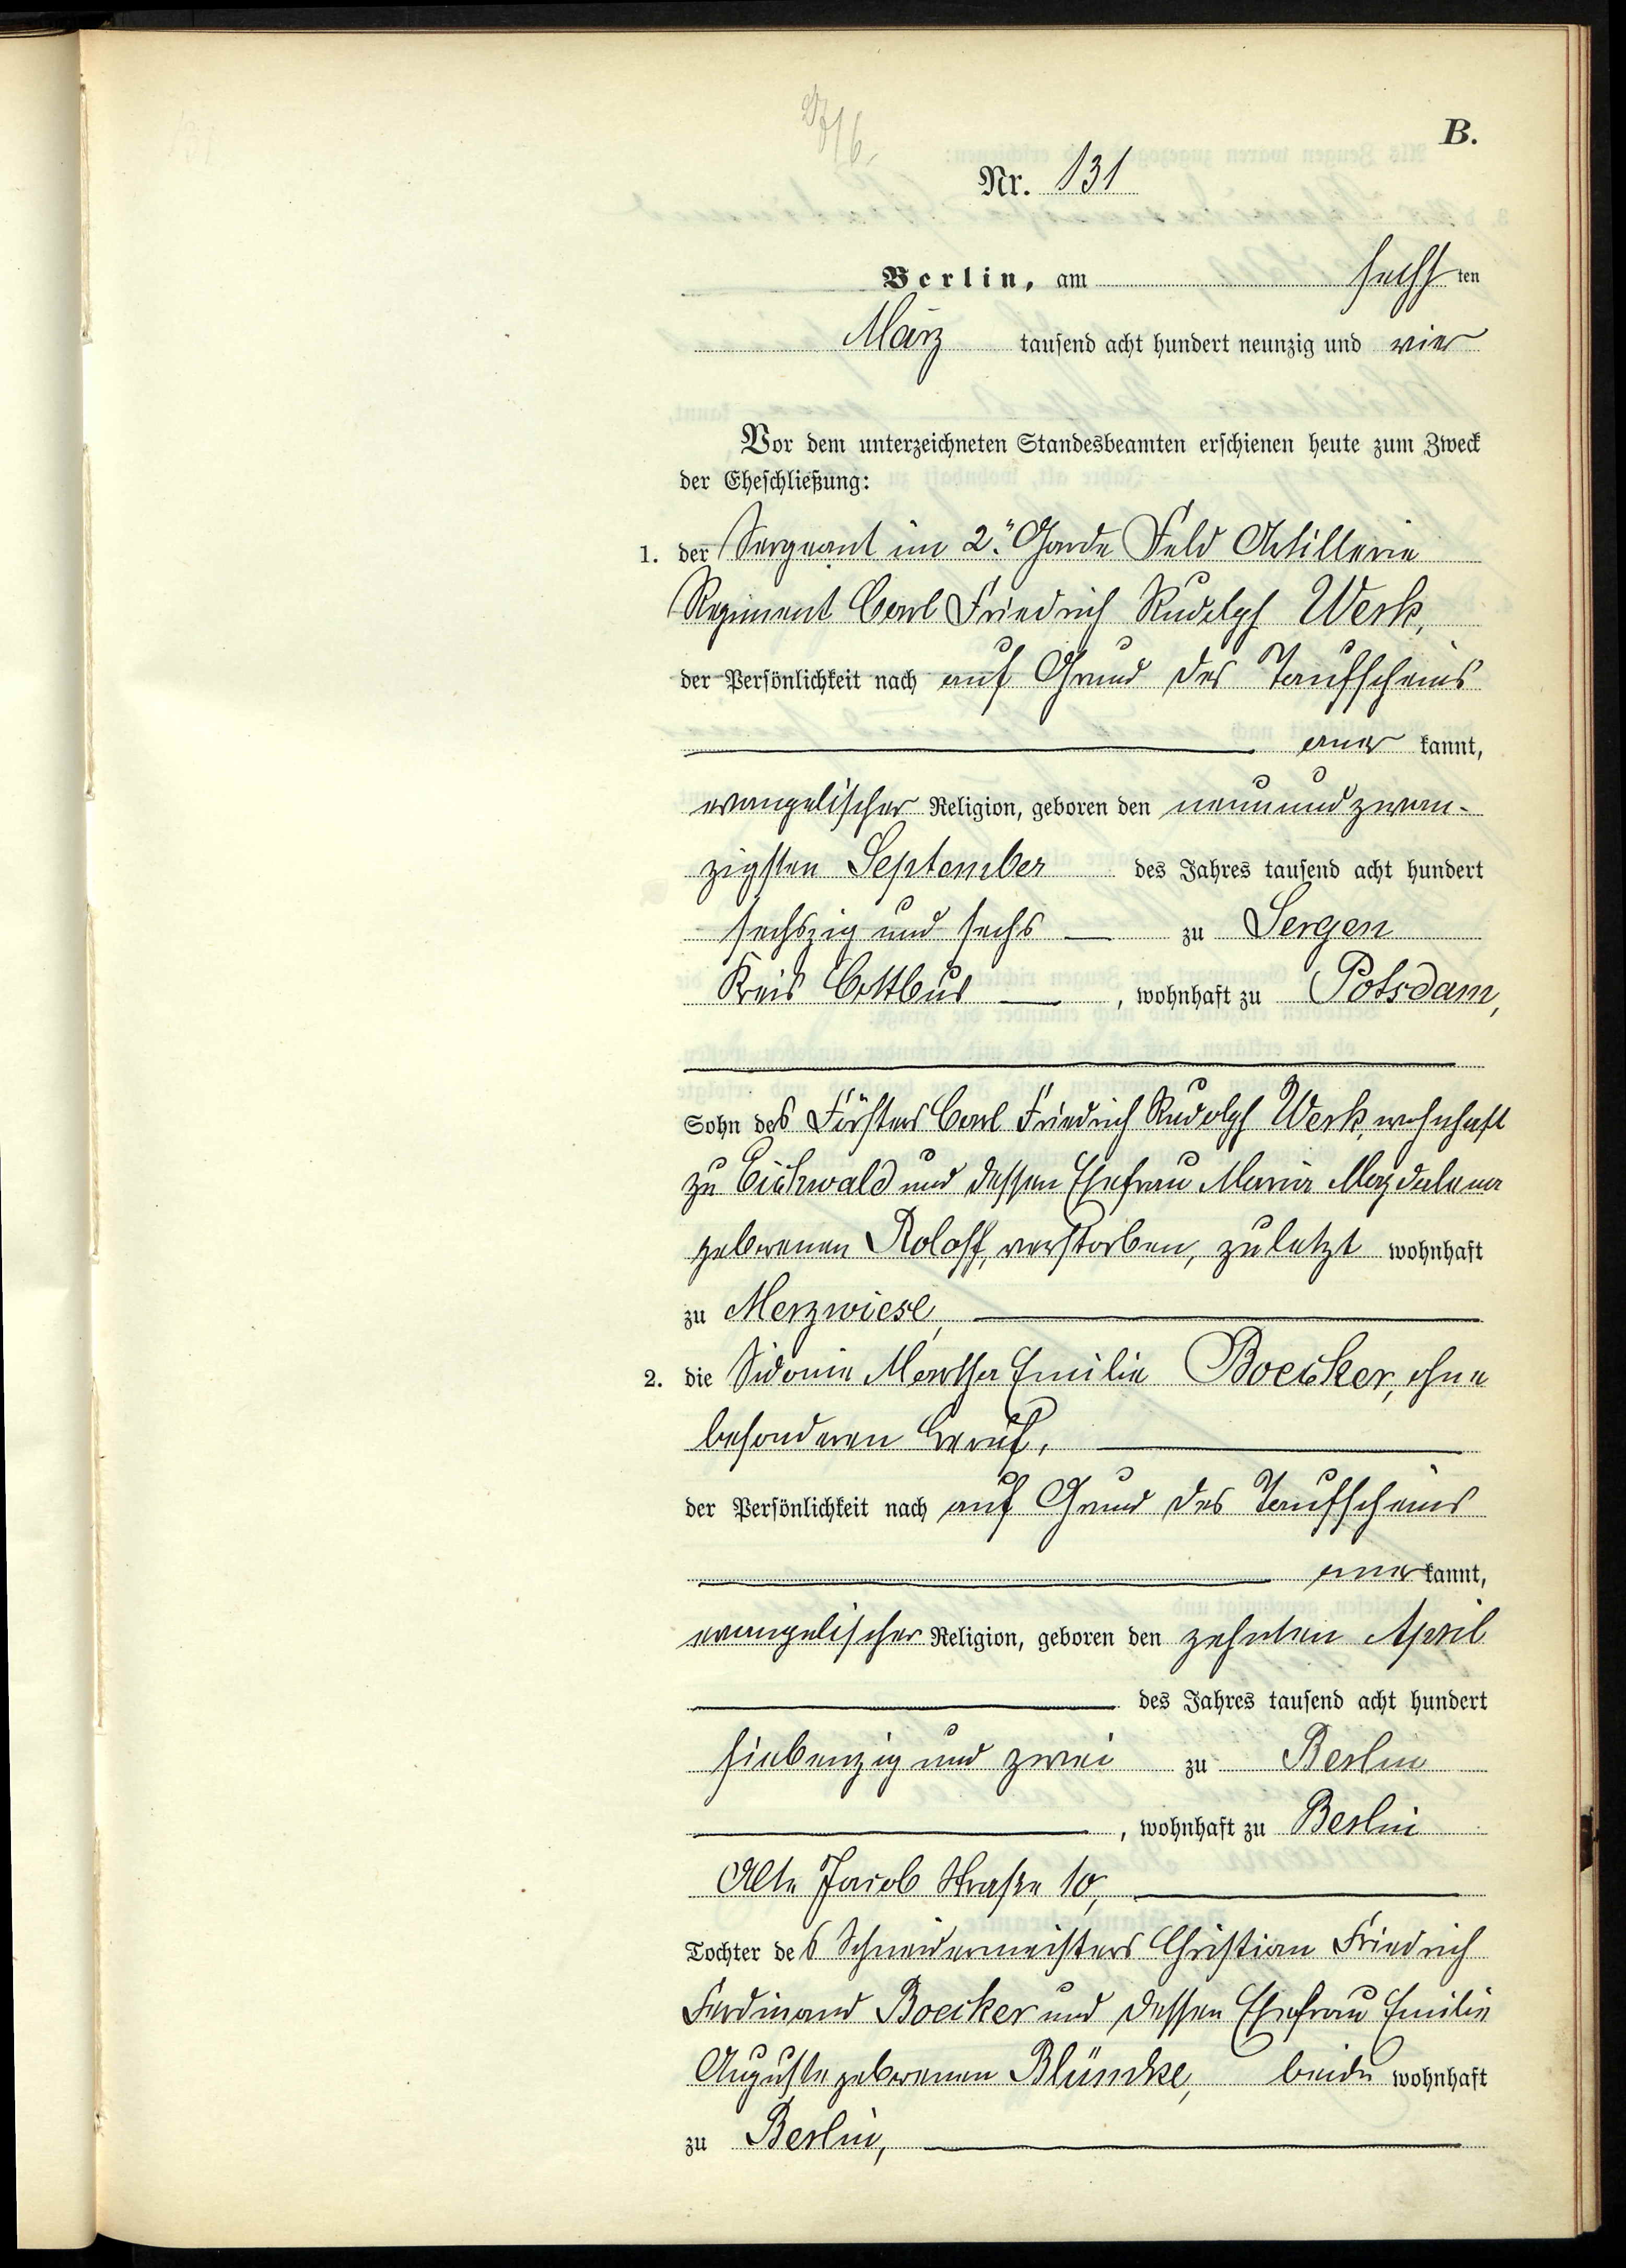 B.
Nr. 131
Berlin, am sechs ten
März tausend acht hundert neunzig und vier
Vor dem unterzeichneten Standesbeamten erschienen heute zum Zweck
der Eheschließung:
1. der Sergeant im 2. Garde Feld Artillerie
Regiment Carl Friedrich Rudolph Werk,
der Persönlichkeit nach auf Grund des Taufscheins
aner kannt,
evangelischer Religion, geboren den neunundzwan-
zigsten September des Jahres tausend acht hundert
sechszig und sechs zu Sergen
Kreis Cottbus, wohnhaft zu Potsdam,
Sohn des Försters Carl Friedrich Rudolph Werk, wohnhaft
zu Eichwald und dessen Ehefrau Maria Magdalena
geborenen Roloff, verstorben, zuletzt wohnhaft
zu Merzwiese,
2. die Sidonie Martha Emilie Boecker, ohne
besonderen Beruf,
der Persönlichkeit nach auf Grund des Taufscheins
aner kannt,
evangelischer Religion, geboren den zehnten April
des Jahres tausend acht hundert
siebenzig und zwei zu Berlin
, wohnhaft zu Berlin
Alte Jacob Straße 10,
Tochter des Schneidermeisters Christian Friedrich
Ferdinand Boecker und dessen Ehefrau Emilie
Auguste geborenen Blümcke, beide wohnhaft
zu Berlin,